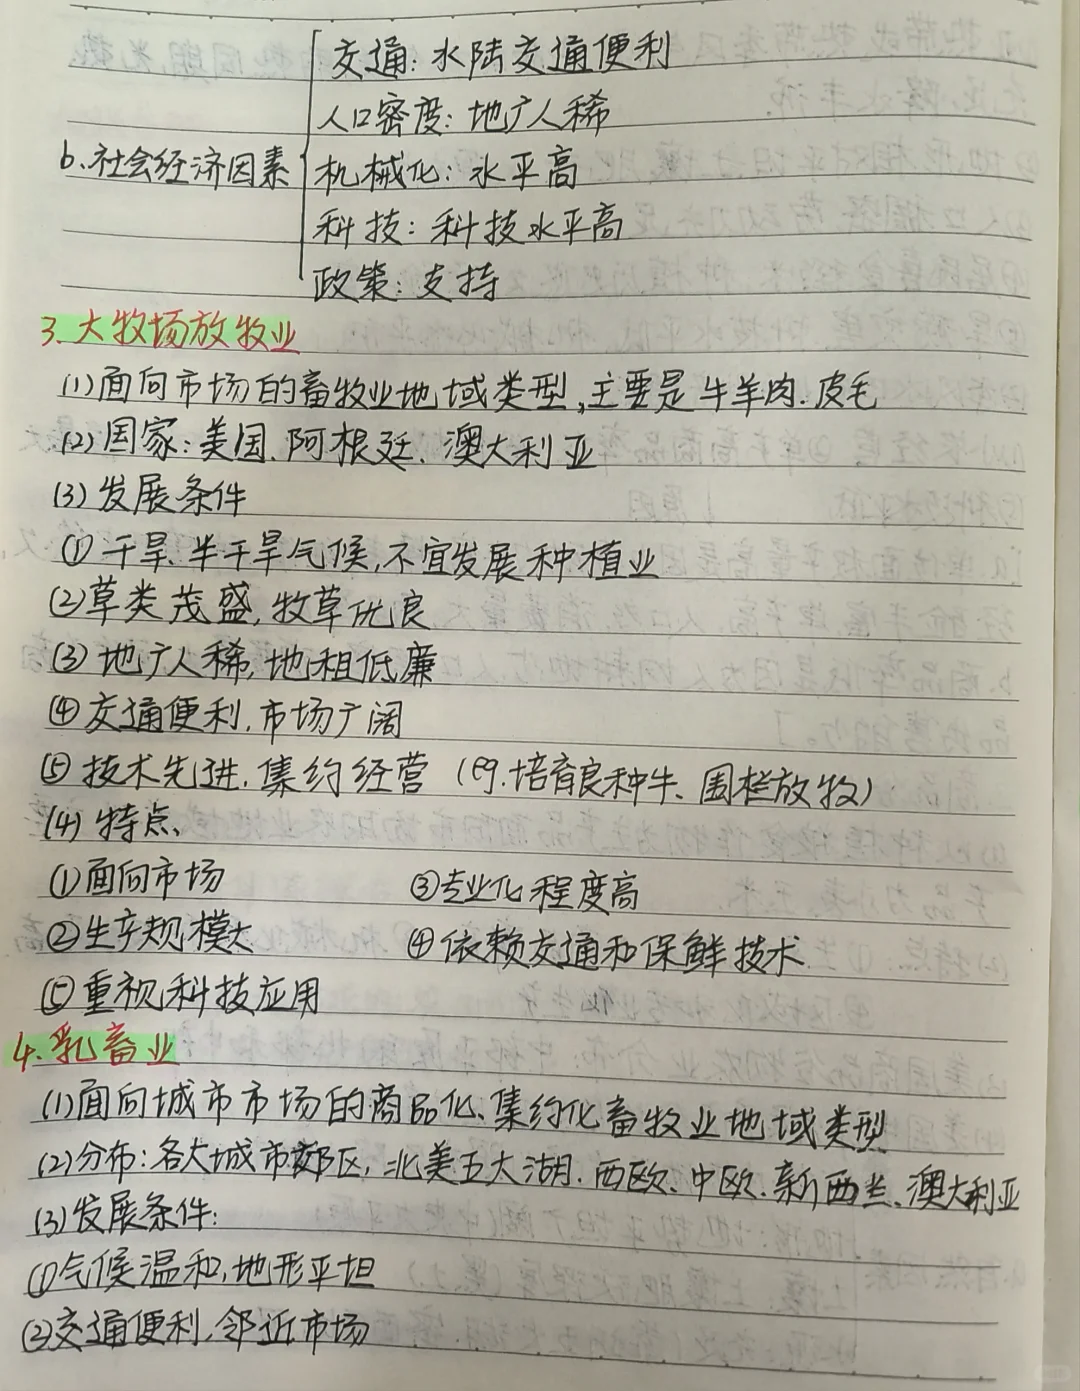 交通：水陆交通便利
人口密度：地广人稀
b.社会经济因素
机械化：水平高
科技：科技水平高
政策：支持
3.大牧场放牧业
(1)面向市场的畜牧业地域类型,主要是牛羊肉.皮毛
(2)国家：美国.阿根廷、澳大利亚
(3)发展条件
①干旱、半干旱气候,不宜发展种植业
②草类茂盛,牧草优良
③地广人稀,地租低廉
④交通便利,市场广阔
⑤技术先进.集约经营(例.培育良种牛、围栏放牧)
(4)特点、
①面向市场 ③专业化程度高
②生产规模大 ④依赖交通和保鲜技术
⑤重视科技应用
4.乳畜业
(1)面向城市市场的商品化、集约化畜牧业地域类型
(2)分布：各大城市郊区,北美五大湖.西欧、中欧.新西兰、澳大利亚
(3)发展条件：
①气候温和,地形平坦
②交通便利.邻近市场